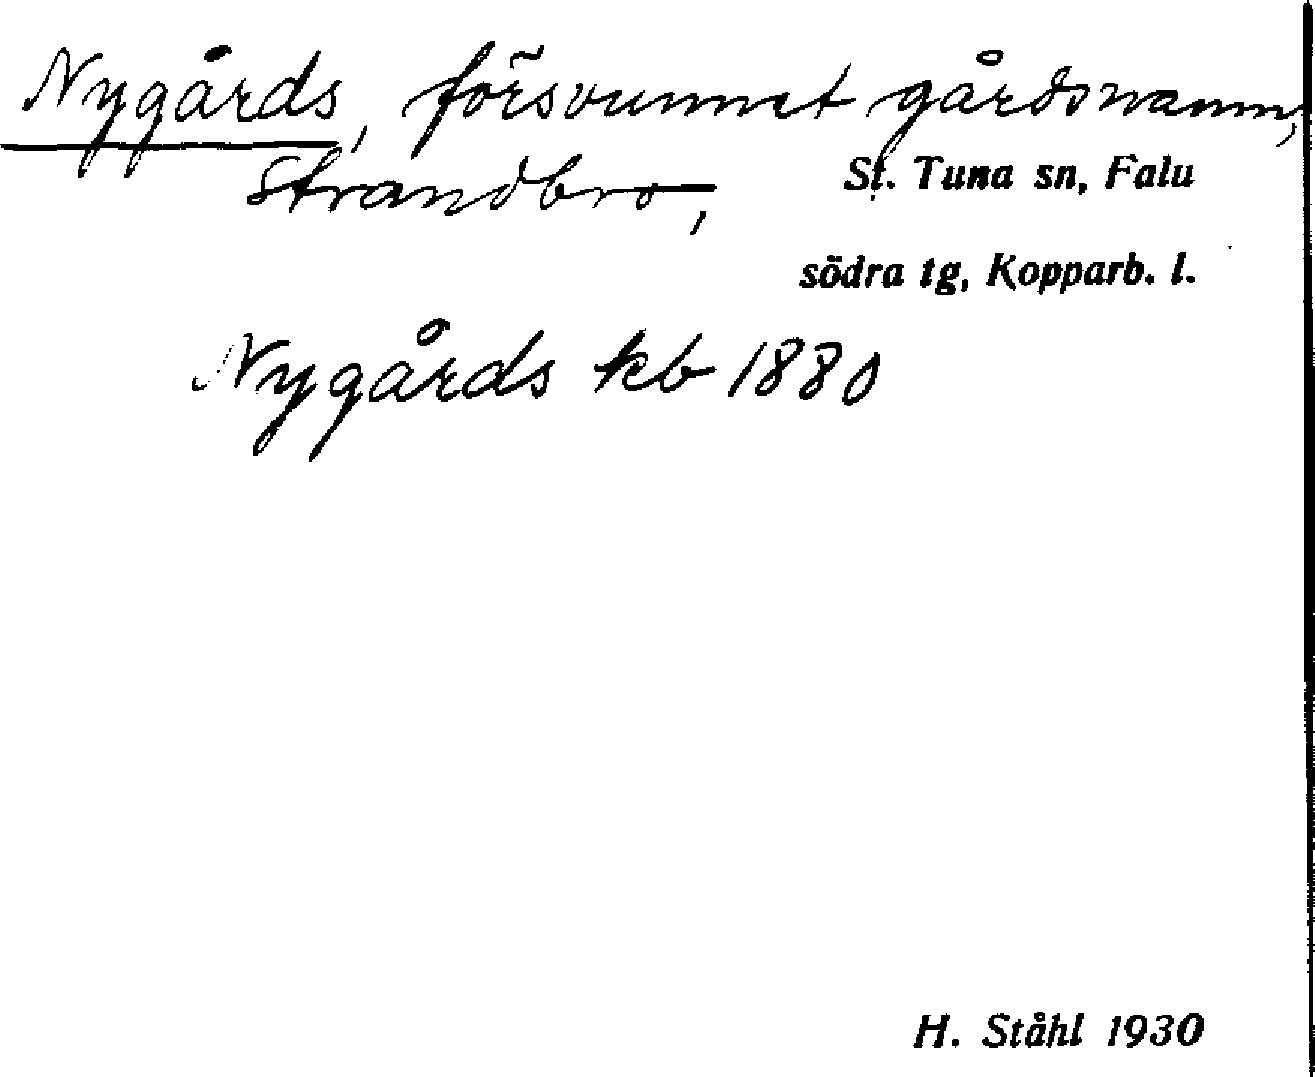 Nygårds, försvunnet gårdsnamn,
Strandbro, St. Tuna sn, Falu
södra tg, Kopparb. l.
Nygårds kb 1880
H. Ståhl 1930